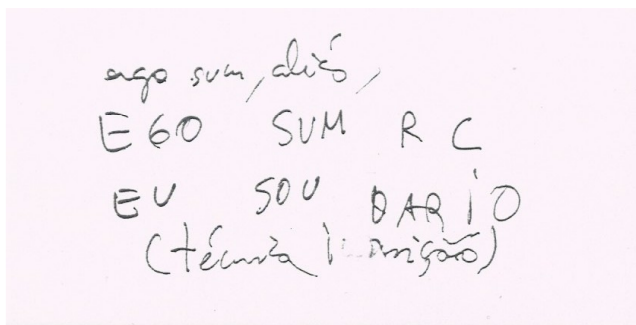 ergo sum, aliás,
EGO SUM R C
EU SOU DARIO
(técnica